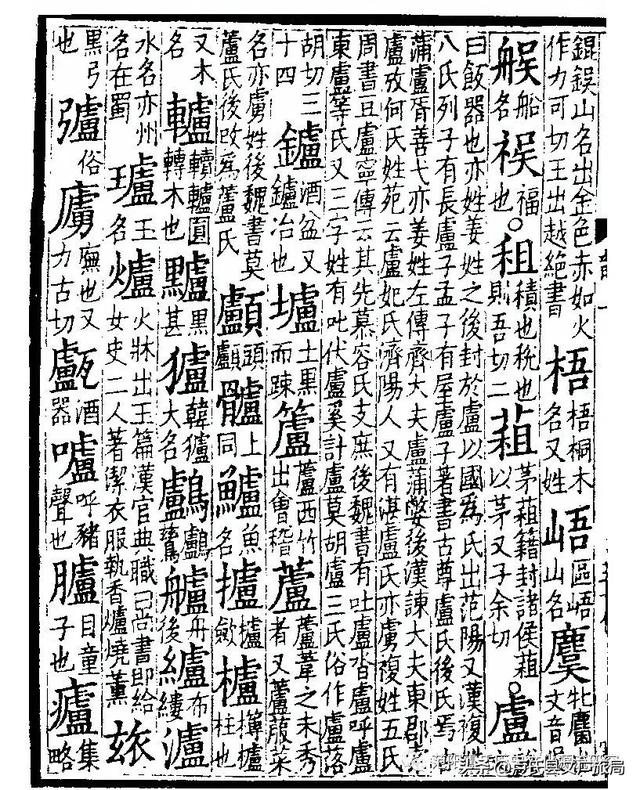 鋘鋘山名出金色赤如火作刀可切玉出越絶書梧梧桐木名又姓峿區峿山名麌牝麢文音
䑨船名祦福也○租積也稅也則吾切二蒩茅蒩籍封諸侯蒩以茅又子余切○盧
曰飯器也亦姓姜姓之後封於盧以國爲氏出范陽又漢複姓八氏列子有長盧子孟子有屋盧子著書古尊盧氏後氏焉
蒲盧胥善弋亦姜姓左傳齊大夫盧蒲嫳後漢諫大夫東郡盧攷何氏姓苑云盧妃氏濟陽人又有湛盧氏亦虜複姓五氏
周書豆盧寧傳云其先慕容氏支庶後魏書有吐盧沓盧呼盧東盧等氏又三字姓有吐伏盧奚計盧莫胡盧三氏俗作盧落
胡切三十四鑪酒盆又鑪冶也壚土黑而疎籚籚西竹出會稽蘆蘆葦之未秀者又蘆菔菜
名亦虜姓後魏書莫蘆氏後攺爲蘆氏顱頭顱髗上同鱸魚名攎攎斂櫨欂櫨柱也
又木名轤轒轤圓轉木也黸黑甚獹韓獹犬名鸕鸕鷀艫舟後纑布縷瀘
水名亦州名在蜀瓐玉名爐火牀出玉篇漢官典職曰尚書郎給女史二人著潔衣服執香爐燒薰玈
黑弓也㢚俗庑也又力古切酒器嚧呼豬聲也矑目童子也集略